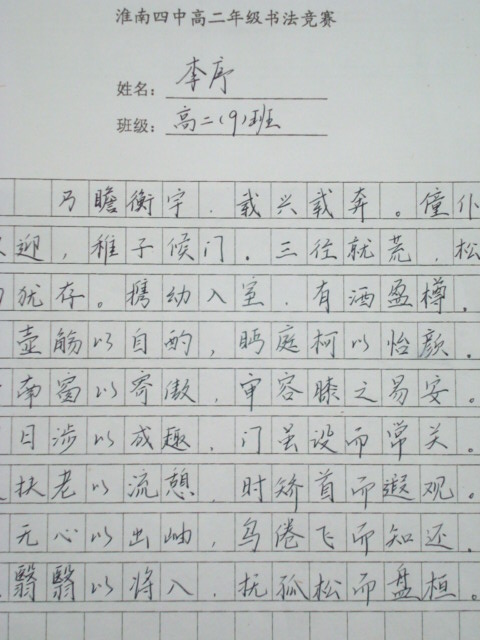 淮南四中高二年级书法竞赛
姓名：李序
班级：高二(9)班
乃瞻衡宇，载兴载奔。僮仆
迎，稚子候门。三径就荒，松
犹存。携幼入室，有酒盈樽。
壶觞以自酌，眄庭柯以怡颜。
南窗以寄傲，审容膝之易安。
日涉以成趣，门虽设而常关。
扶老以流憩，时矫首而遐观。
无心以出岫，鸟倦飞而知还。
翳翳以将入，抚孤松而盘桓。